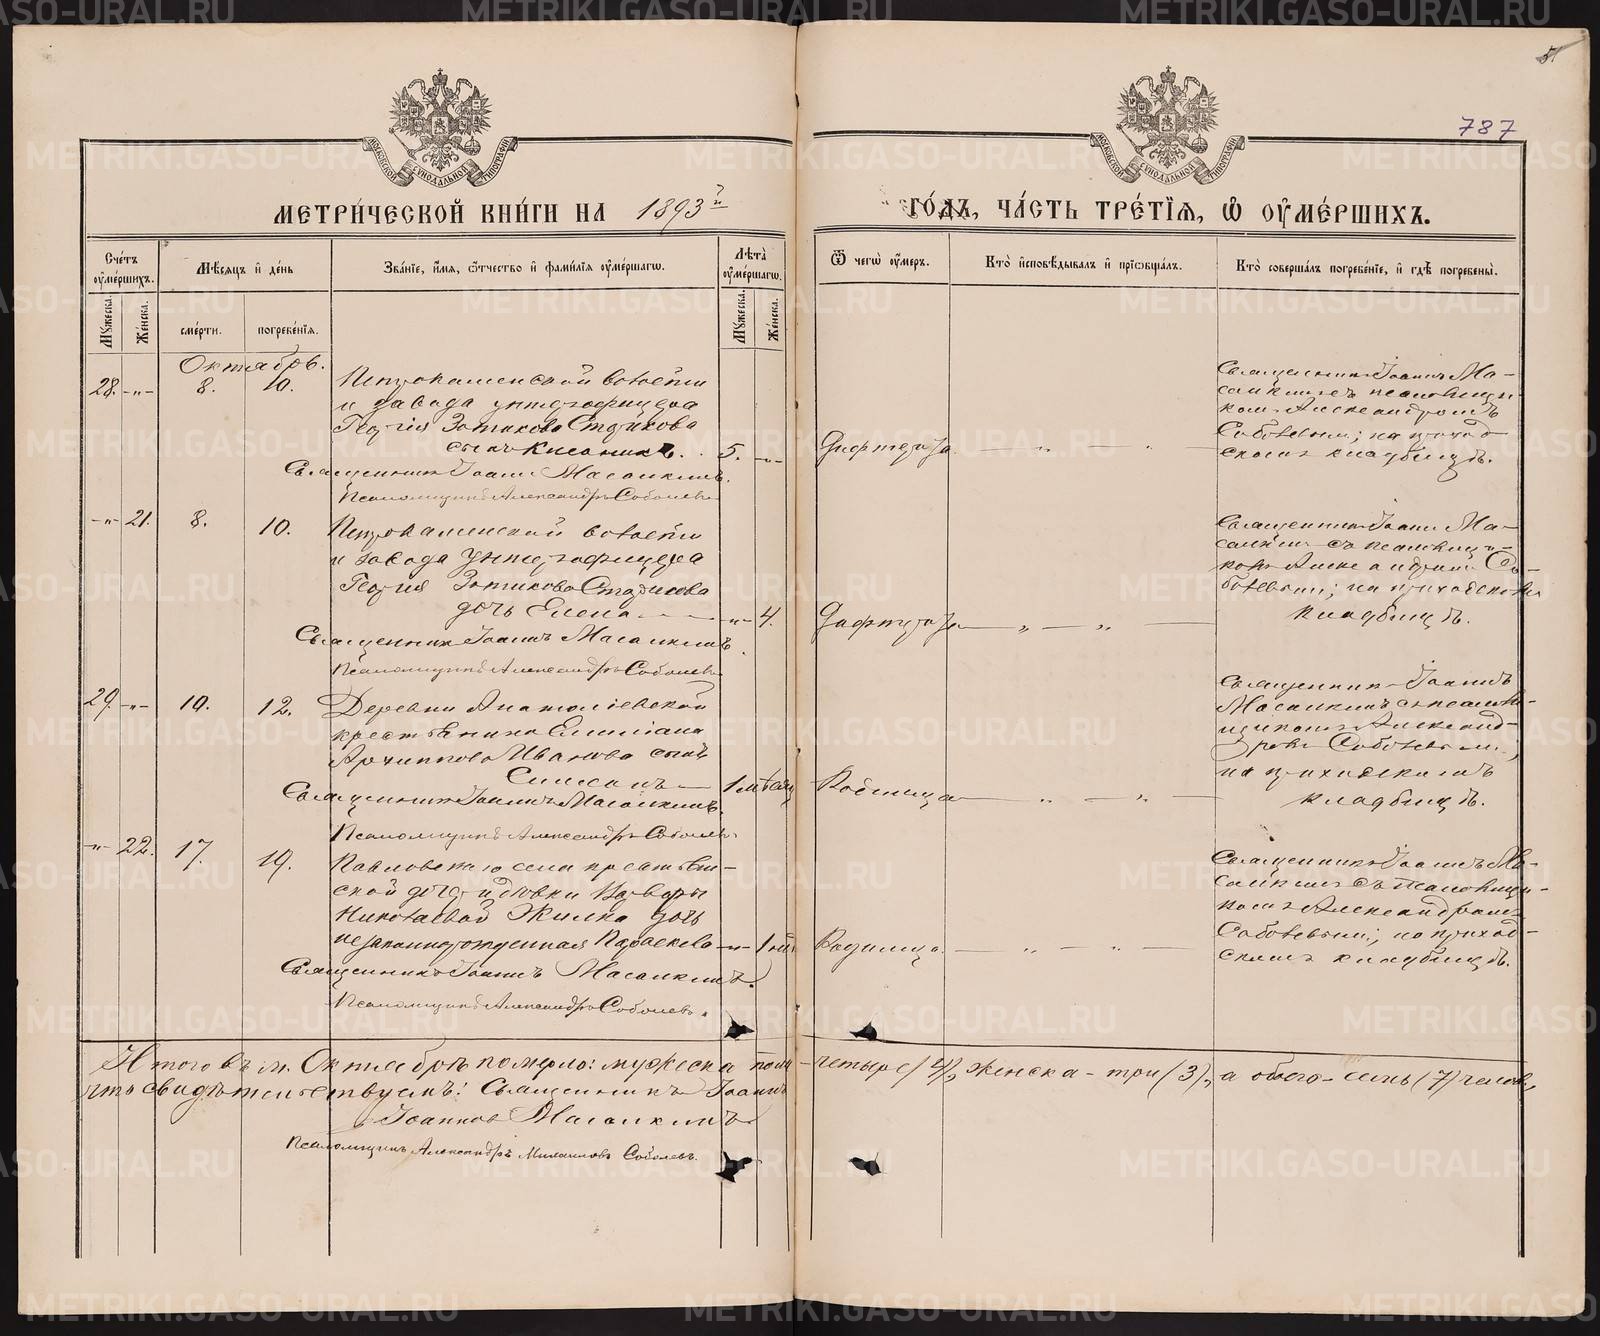 787
МЕТРИ́ЧЕСКОЙ КНИ́ГИ НА 1893й ГО́ДЪ, ЧА́СТЬ ТРЕ́ТЇѦ, Ѽ ОУ҆МЕ́РШИХЪ.
Сче́тъ оу҆ме́ршихъ.
Мѣ́сѧцъ и҆ де́нь
Зва́нїе, и҆́мѧ, ѻ҆́тчество и҆ фами́лїѧ оу҆ме́ршагѡ.
Лѣ̑та̀ оу҆ме́ршагѡ.
Ѿ чегѡ̀ оу҆́меръ.
Кто̀ и҆сповѣ́дывалъ и҆ прїѡбща́лъ.
Кто̀ соверша́лъ погребе́нїе, и҆ гдѣ̀ погребены̀.
Мꙋ́жеска.
Же́нска.
сме́рти.
погребе́нїѧ.
Мꙋ́жеска.
Же́нска.
Октябрь.
28. -„- 8. 10. Петрокаменской волости
и завода унтерофицера
Георгія Зотикова Старикова
сынъ 5. -„-
Священникъ Іоаннъ Масалкинъ.
Псаломщикъ Александръ Соболевъ
Священникъ Іоаннъ Ма-
салкинъ съ псаломщи
комъ Александромъ
Соболевымъ; на приход
скомъ кладбищѣ.
-„- 21. 8. 10. Петрокаменской волости
и завода унтерофицера
Георгія Зотикова Старикова
дочь Елена -„- 4.
Священникъ Іоаннъ Масалкинъ.
Псаломщикъ Александръ Соболевъ
Священникъ Іоаннъ Ма-
салкинъ съ псаломщи-
комъ Александромъ Со-
болевымъ; на приходскомъ
кладбищѣ.
29. -„- 10. 12. Деревни Анатоліевской
крестьянина Емиліана
Архиппова Иванова сынъ
1 мѣсяц
Священникъ Іоаннъ Масалкинъ.
Псаломщикъ Александръ Соболевъ
Родимца
Священникъ Іоаннъ
Масалкинъ съ псалом-
щикомъ Александ-
ромъ Соболевымъ;
на приходскомъ
кладбищѣ.
-„- 22. 17. 19. Павловскаго села крестьян-
ской дочери дѣвки Варвары
Николаевой Жилка дочь
незаконнорожденная Параскева -„-
Священникъ Іоаннъ Масалкинъ.
Псаломщикъ Александръ Соболевъ.
Родимца
Священникъ Іоаннъ Ма-
салкинъ съ псаломщи-
комъ Александромъ
Соболевымъ; на приход-
скомъ кладбищѣ.
Итого въ м. Октябрѣ померло: мужеска пола - четыре (4), женска - три (3), а обоего - семь (7) человѣкъ,
что свидѣтельствуемъ: Священникъ Іоаннъ
Іоанновъ Масалкинъ
Псаломщикъ Александръ Михаиловъ Соболевъ.